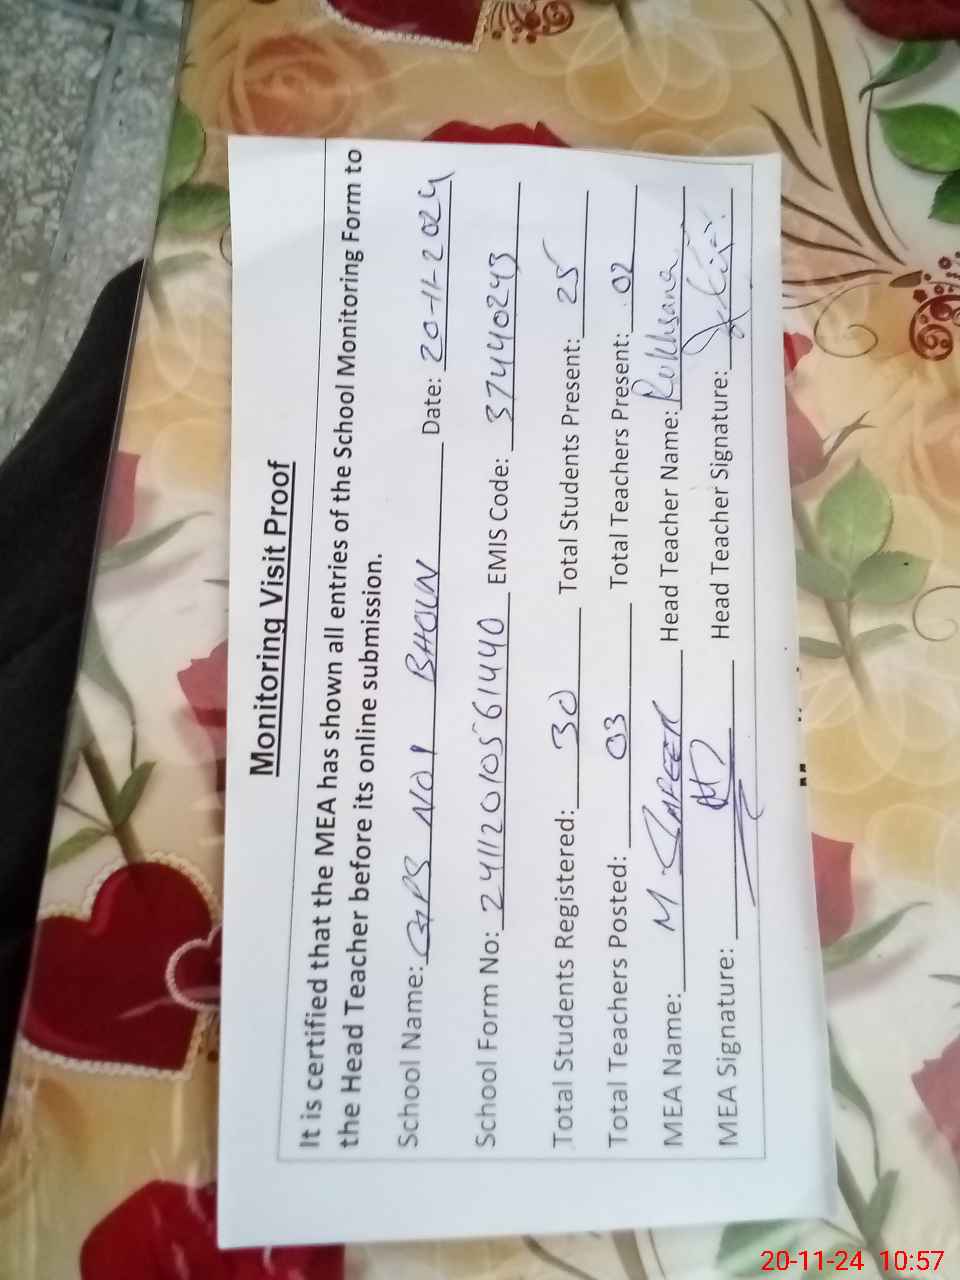 Monitoring Visit Proof
It is certified that the MEA has shown all entries of the School Monitoring Form to
the Head Teacher before its online submission.
School Name: GPS NO 1 BHOUN Date: 20-11-2024
School Form No: 24112010561440 EMIS Code: 37440243
Total Students Registered: 30 Total Students Present: 25
Total Teachers Posted: 03 Total Teachers Present: 02
MEA Name: M Head Teacher Name: Rukhsana
MEA Signature: Head Teacher Signature:
20-11-24 10:57